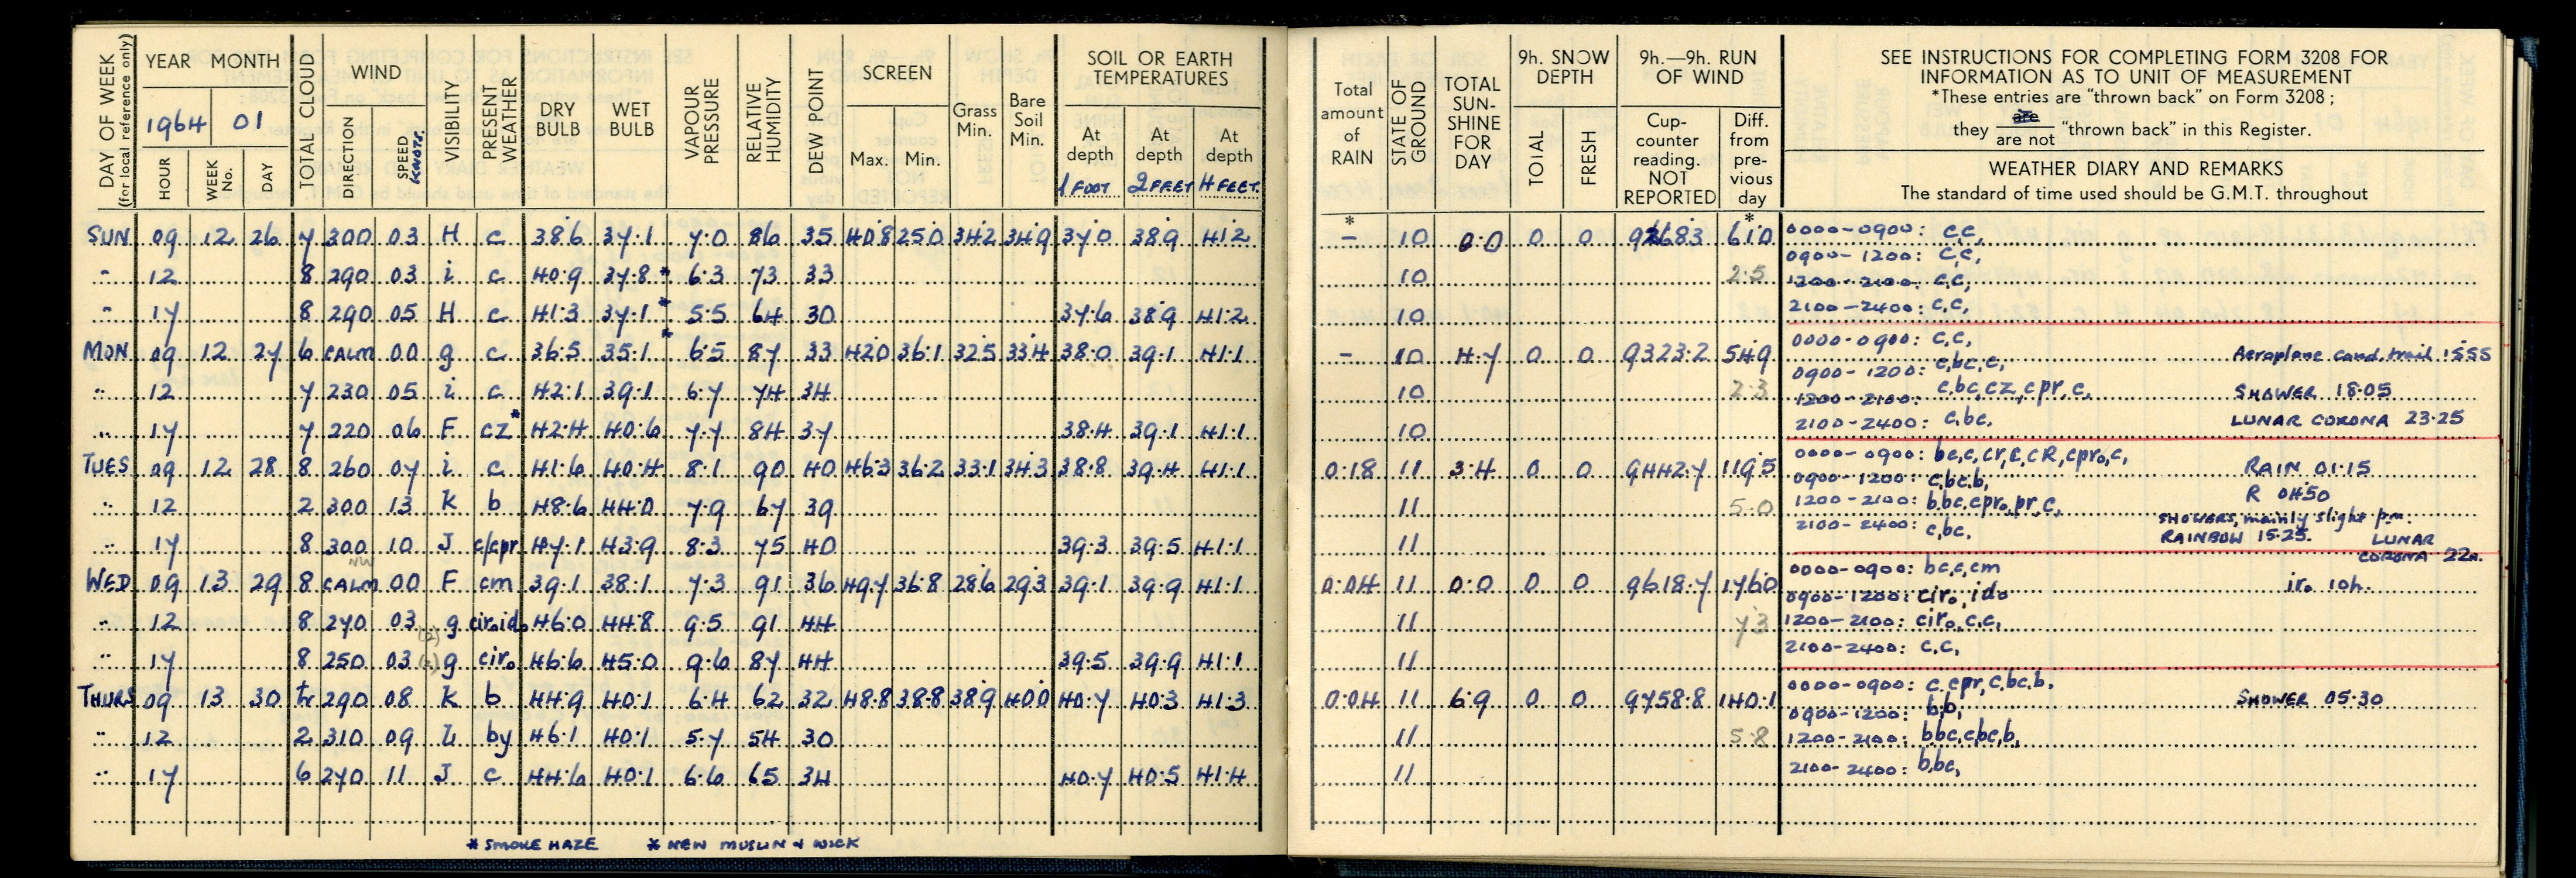 DAY OF WEEK (for local reference only) YEAR MONTH TOTAL CLOUD WIND VISIBILITY PRESENT WEATHER DRY BULB WET BULB VAPOUR PRESSURE RELATIVE HUMIDITY DEW POINT SCREEN Grass Min. Bare Soil Min. SOIL OR EARTH TEMPERATURES
1964 01
HOUR WEEK No. DAY DIRECTION SPEED KNOTS. Max. Min. At depth 1 FOOT At depth 2 FEET At depth 4 FEET.
SUN 09 12 26 7 300 03 H c 38.6 37.1 7.0 86 35 40.8 25.0 34.2 34.9 37.0 38.9 41.2
" 12 8 290 03 i c 40.9 37.8 * 6.3 73 33
" 17 8 290 05 H c 41.3 37.1 * 5.5 64 30 37.6 38.9 41.2
MON 09 12 27 6 CALM 00 g c 36.5 35.1 * 6.5 87 33 42.0 36.1 32.5 33.4 38.0 39.1 41.1
" 12 7 230 05 i c 42.1 39.1 6.7 74 34
" 17 7 220 06 F cz * 42.4 40.6 7.7 84 37 38.4 39.1 41.1
TUES 09 12 28 8 260 07 i c 41.6 40.4 8.1 90 40 46.3 36.2 33.1 34.3 38.8 39.4 41.1
" 12 2 300 13 K b 48.6 44.0 7.9 67 39
" 17 8 300 10 J c/cpr 47.1 43.9 8.3 75 40 39.3 39.5 41.1
NW
WED 09 13 29 8 CALM 00 F cm 39.1 38.1 7.3 91 36 49.7 36.8 28.6 29.3 39.1 39.9 41.1
" 12 8 270 03 g ciroido 46.0 44.8 9.5 91 44
" 17 8 250 03 g ciro 46.6 45.0 9.6 87 44 39.5 39.9 41.1
THURS 09 13 30 tr 290 08 K b 44.9 40.1 6.4 62 32 48.8 38.8 38.9 40.0 40.7 40.3 41.3
" 12 2 310 09 L by 46.1 40.1 5.7 54 30
" 17 6 270 11 J c 44.6 40.1 6.6 65 34 40.7 40.5 41.4
* SMOKE HAZE * NEW MUSLIN & WICK
Total amount of RAIN STATE OF GROUND TOTAL SUN-SHINE FOR DAY 9h. SNOW DEPTH TOTAL FRESH 9h.—9h. RUN OF WIND Cup-counter reading. NOT REPORTED Diff. from pre-vious day
SEE INSTRUCTIONS FOR COMPLETING FORM 3208 FOR
INFORMATION AS TO UNIT OF MEASUREMENT
*These entries are "thrown back" on Form 3208 ;
they are / are not "thrown back" in this Register.
WEATHER DIARY AND REMARKS
The standard of time used should be G.M.T. throughout
* *
– 10 0.0 0 0 9268.3 61.0 0000-0900: c,c,
0900-1200: c,c,
10 2.5 1200-2100: c,c,
10 2100-2400: c,c,
– 10 4.7 0 0 9323.2 54.9 0000-0900: c,c, Aeroplane cond. trail 1555
0900-1200: c,bc,c,
10 2.3 1200-2100: c,bc,cz,cpr,c, SHOWER 18.05
10 2100-2400: c,bc, LUNAR CORONA 23.25
0.18 11 3.4 0 0 9442.7 119.5 0000-0900: bc,c,cr,c,cR,cpro,c, RAIN 01.15
0900-1200: c,bc,b, R 0450
11 5.0 1200-2100: b,bc,cpro,pr,c, SHOWERS, mainly slight pm.
11 2100-2400: c,bc, RAINBOW 15.25. LUNAR CORONA 22h.
0.04 11 0.0 0 0 9618.7 176.0 0000-0900: bc,c,cm iro 10h.
0900-1200: ciro, ido
11 7.3 1200-2100: ciro,c,c,
11 2100-2400: c,c,
0.04 11 6.9 0 0 9758.8 140.1 0000-0900: c,cpr,c,bc,b, SHOWER 05.30
0900-1200: b,b,
11 5.8 1200-2100: b,bc,c,bc,b,
11 2100-2400: b,bc,